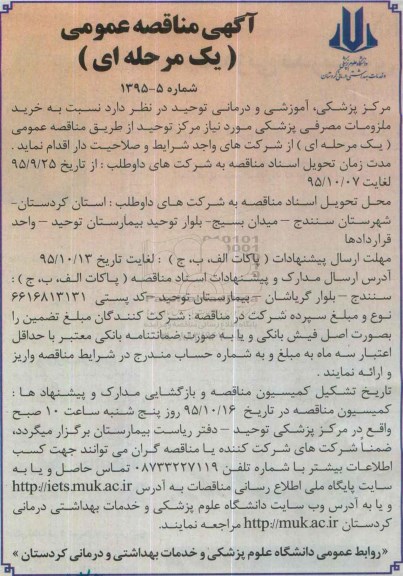 آگهی مناقصه عمومی
( یک مرحله ای )
شماره ۵-۱۳۹۵
دانشگاه علوم پزشکی
و خدمات بهداشتی درمانی کردستان
مرکز پزشکی، آموزشی و درمانی توحید در نظر دارد نسبت به خرید
ملزومات مصرفی پزشکی مورد نیاز مرکز توحید از طریق مناقصه عمومی
( یک مرحله ای ) از شرکت های واجد شرایط و صلاحیت دار اقدام نماید .
مدت زمان تحویل اسناد مناقصه به شرکت های داوطلب : از تاریخ ۹۵/۹/۲۵
لغایت ۹۵/۱۰/۰۷
محل تحویل اسناد مناقصه به شرکت های داوطلب : استان کردستان-
شهرستان سنندج – میدان بسیج- بلوار توحید بیمارستان توحید – واحد
قراردادها
مهلت ارسال پیشنهادات ( پاکات الف، ب، ج ) : لغایت تاریخ ۹۵/۱۰/۱۳
آدرس ارسال مدارک و پیشنهادات اسناد مناقصه ( پاکات الف، ب، ج ) :
سنندج – بلوار گریاشان – بیمارستان توحید -کد پستی ۶۶۱۶۸۱۳۱۳۱
نوع و مبلغ سپرده شرکت در مناقصه : شرکت کنندگان مبلغ تضمین را
بصورت اصل فیش بانکی و یا به صورت ضمانتنامه بانکی معتبر با حداقل
اعتبار سه ماه به مبلغ و به شماره حساب مندرج در شرایط مناقصه واریز
و ارائه نمایند .
تاریخ تشکیل کمیسیون مناقصه و بازگشایی مدارک و پیشنهاد ها :
کمیسیون مناقصه در تاریخ ۹۵/۱۰/۱۶ روز پنج شنبه ساعت ۱۰ صبح
واقع در مرکز پزشکی توحید – دفتر ریاست بیمارستان برگزار میگردد،
ضمناً شرکت های شرکت کننده یا مناقصه گران می توانند جهت کسب
اطلاعات بیشتر با شماره تلفن ۰۸۷۳۳۲۲۷۱۱۹ تماس حاصل و یا به
سایت پایگاه ملی اطلاع رسانی مناقصات به آدرس http://iets.muk.ac.ir
و یا به آدرس وب سایت دانشگاه علوم پزشکی و خدمات بهداشتی درمانی
کردستان http://muk.ac.ir مراجعه نمایند.
«روابط عمومی دانشگاه علوم پزشکی و خدمات بهداشتی و درمانی کردستان »